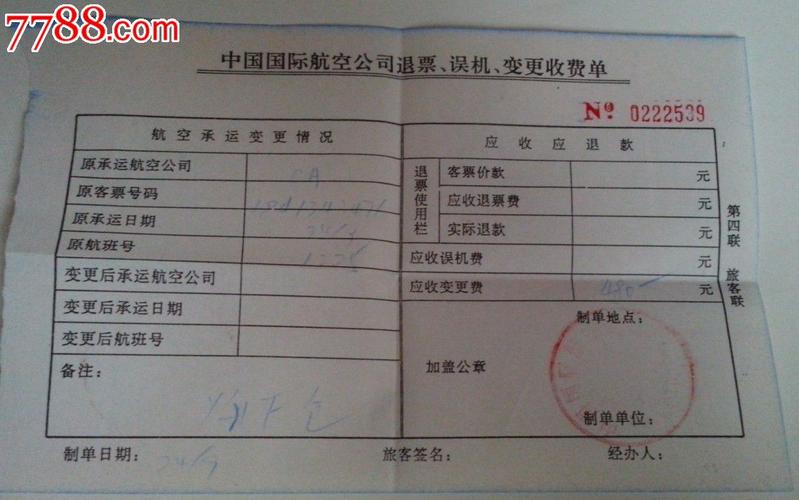 7788.com
中国国际航空公司退票、误机、变更收费单
Nº 0222539
航空承运变更情况
应收应退款
原承运航空公司 CA
原客票号码
原承运日期
原航班号
变更后承运航空公司
变更后承运日期
变更后航班号
备注:
退票使用栏
客票价款 元
应收退票费 元
实际退款 元
应收误机费 元
应收变更费 480 元
制单地点:
加盖公章
制单单位:
第四联 旅客联
制单日期:
旅客签名:
经办人: